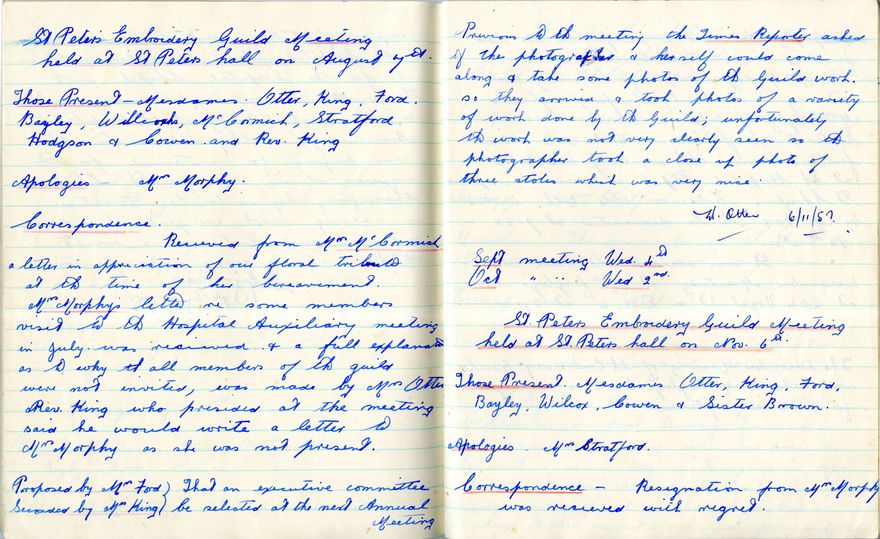 St Peters Embroidery Guild Meeting
held at St Peters hall on August 7th.
Those Present - Mesdames. Otter, King, Ford.
Bayley, Willcocks, McCormick, Stratford
Hodgson & Cowen. and Rev. King
Apologies - Mrs Morphy.
Correspondence.
Recieved from Mrs McCormick
a letter in appreciation of our floral tribute
at th time of her bereavement.
Mrs Morphy's letter re some members
visit to th Hospital Auxiliary meeting
in July was recieved & a full explanation
as to why th all members of th guild
were not invited, was made by Mrs Otter
Rev. King who presided at the meeting
said he would write a letter to
Mrs Morphy as she was not present.
Proposed by Mrs Ford } That an executive committee
Seconded by Mrs King } be selected at the next Annual
Meeting
Previous to th meeting the Times Reporter asked
if the photographer & herself could come
along & take some photos of th Guild work.
so they arrived & took photos of a variety
of work done by th Guild; unfortunately
th work was not very clearly seen so th
photographer took a close up photo of
three stoles which was very nice.
H. Otter 6/11/57.
Sept meeting Wed. 4th
Oct " " Wed 2nd.
St Peters Embroidery Guild Meeting
held at St. Peters hall on Nov. 6th.
Those Present. Mesdames Otter, King, Ford,
Bayley, Wilcox, Cowen & Sister Brown.
Apologies. Mrs Stratford.
Correspondence - Resignation from Mrs Morphy
was recieved with regret.